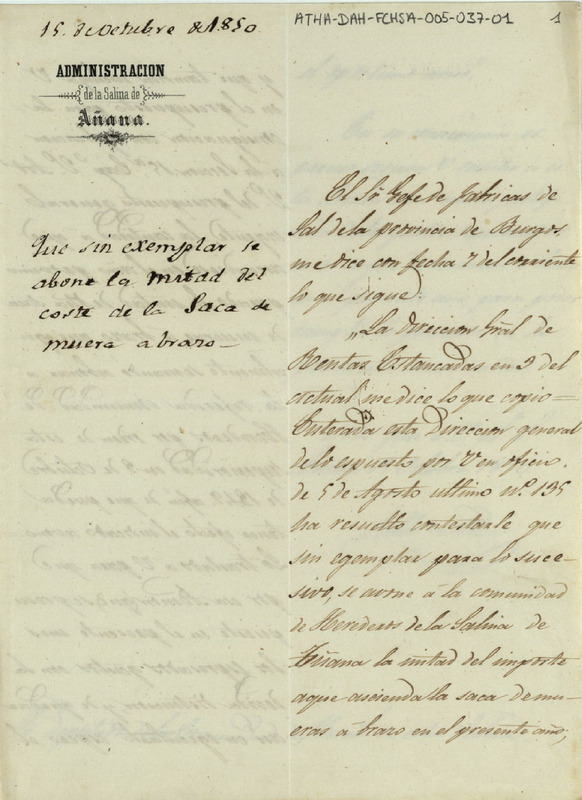 15. de Octubre de 1850
ATHA-DAH-FCHSA-005-037-01
1
ADMINISTRACION
de la Salina de
Añana.
Que sin exemplar se
abone la mitad del
coste de la Saca de
muera abrazo—
El Sr. Gefe de fabricas de
Sal de la provincia de Burgos
me dice con fecha 7 del corriente
lo que sigue.
„La Direccion Gral de
Rentas Estancadas en 2 del
actual me dice lo que copio=
Enterada esta Direccion general
delo espuesto por V en oficio
de 5 de Agosto ultimo nº. 135
ha resuelto contestarle que
sin egemplar para lo suce-
sivo, se avone á la comunidad
de Herederos de la Salina de
Añana la mitad del importe
aque ascienda la saca demue-
ras á brazo en el presente año;